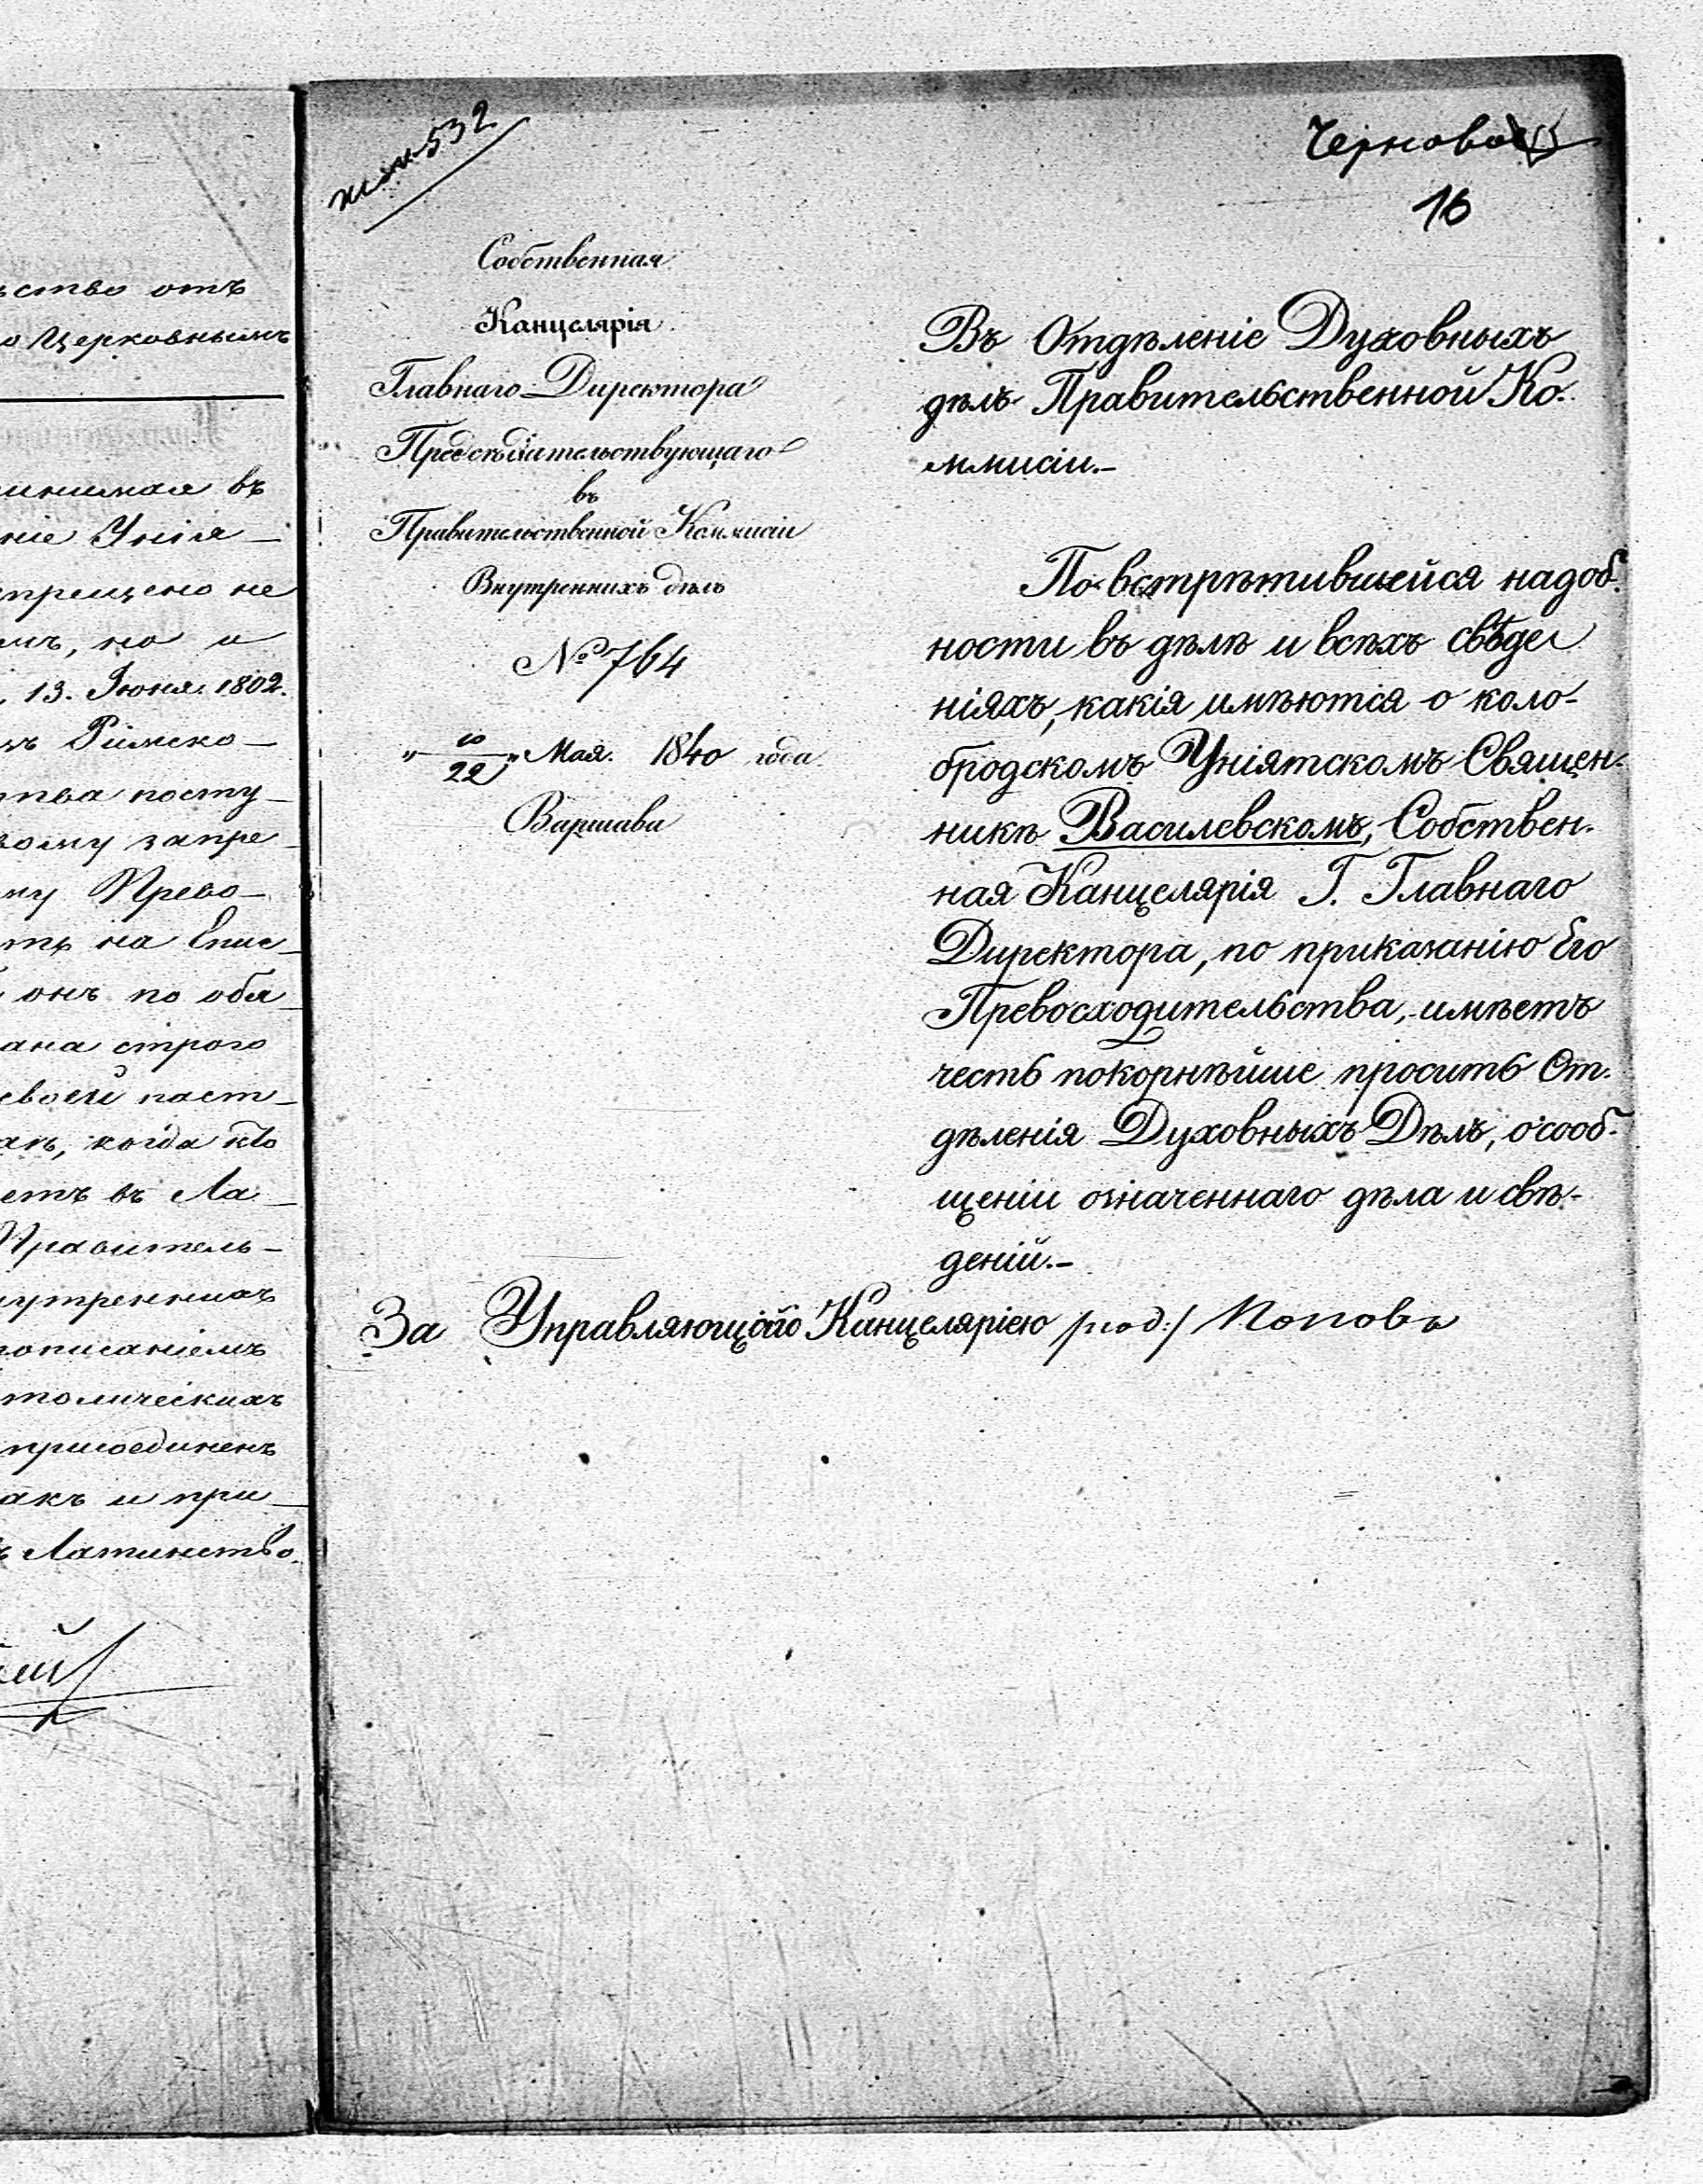 ьство отъ
о Церковнымъ
инимая въ
ніе Унія-
трещено не
мъ, но и
, 13. Іюня 1802.
мъ Римско-
тва посту-
вому запре-
му Прево-
ть на Епис-
онъ по обя-
ана строго
своей паст-
ахъ, когда кто
етъ въ Ла-
Правитель-
нутреннихъ
рописаніемъ
толическихъ
присоединенъ
акъ и при-
ъ Латинство.
532
Черновое
16
Собственная
Канцелярія
Главнаго Директора
Предсѣдательствующаго
въ
Правительственной Коммисіи
Внутреннихъ дѣлъ
№ 764
„10/22„ Мая. 1840 года
Варшава
Въ Отдѣленіе Духовныхъ
дѣлъ Правительственной Ко-
ммисіи.-
По встрѣтившейся надоб-
ности въ дѣлѣ и всѣхъ свѣде-
ніяхъ, какія имѣются о коло-
бродскомъ Уніятскомъ Священ-
никѣ Василевскомъ, Собствен-
ная Канцелярія Г. Главнаго
Директора, по приказанію Его
Превосходительства, имѣетъ
честь покорнѣйше просить От-
дѣленія Духовныхъ Дѣлъ, о сооб-
щеніи означеннаго дѣла и свѣ-
деній.-
За Управляющаго Канцеляріею /под:/ Поповъ